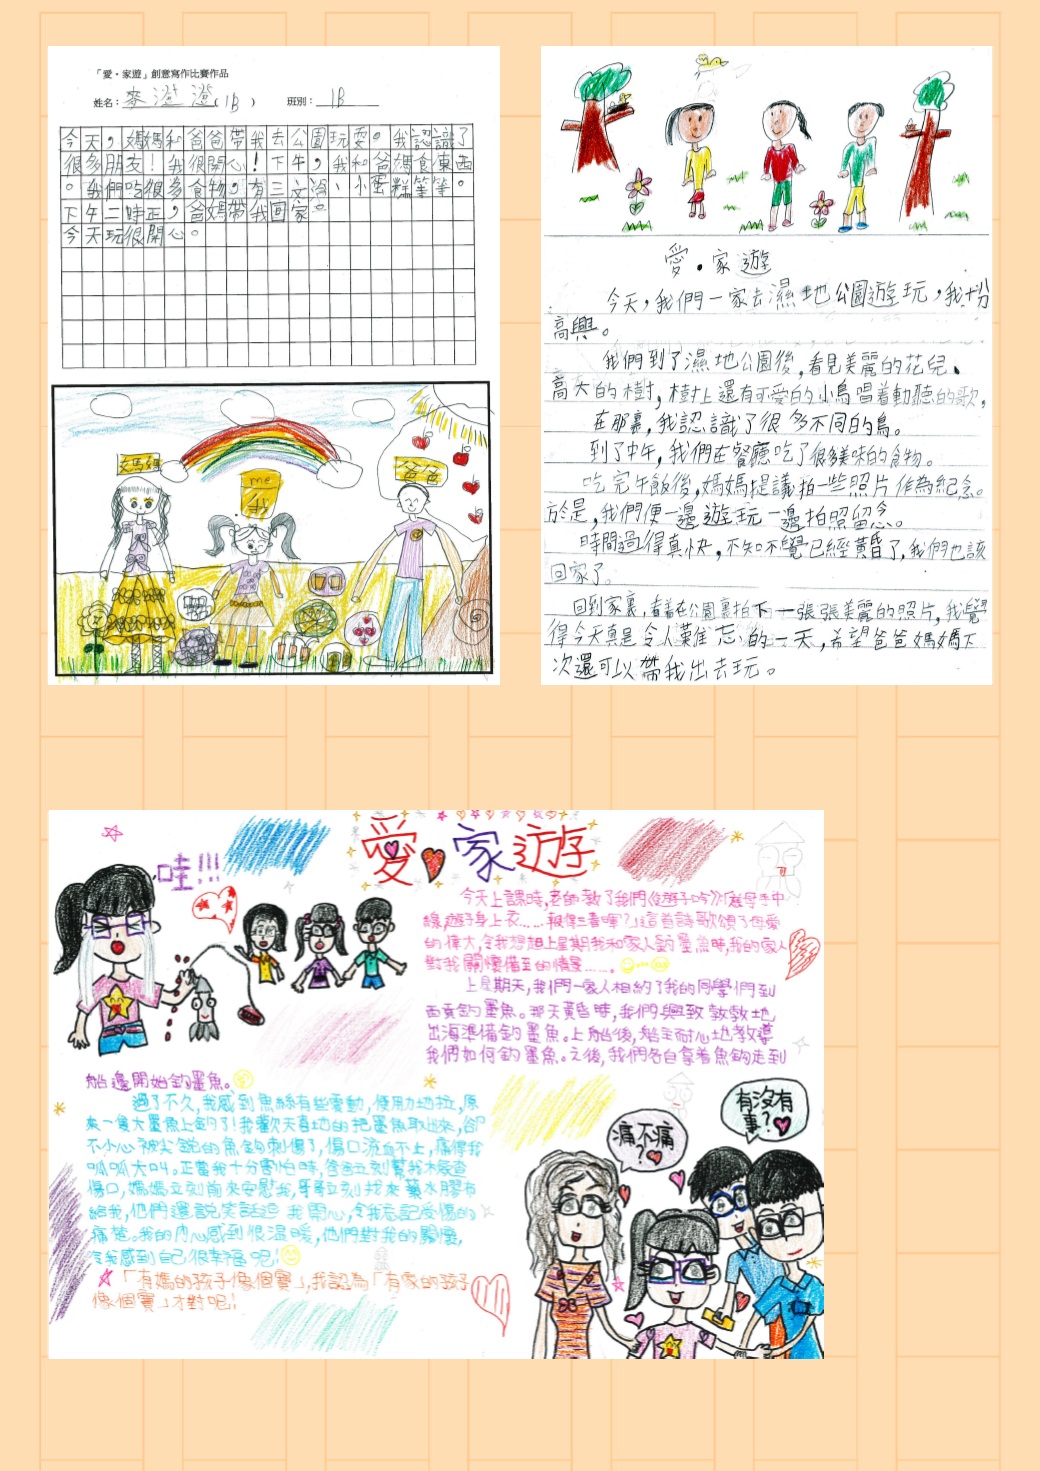 「愛・家遊」創意寫作比賽作品
姓名：麥澄澄(1B) 班別：1B
今天，媽媽和爸爸帶我去公園玩耍。我認識了
很多朋友！我很開心！下午，我和爸媽食東西
。我們吃很多食物，有三文治、小蛋糕等等。
下午二時正，爸媽帶我回家。
今天玩很開心。
媽媽
me
我
爸爸
愛・家遊
今天，我們一家去濕地公園遊玩，我十分
高興。
我們到了濕地公園後，看見美麗的花兒、
高大的樹，樹上還有可愛的小鳥唱着動聽的歌，
在那裏，我認識了很多不同的鳥。
到了中午，我們在餐廳吃了很多美味的食物。
吃完午飯後，媽媽提議拍一些照片作為紀念。
於是，我們便一邊遊玩一邊拍照留念。
時間過得真快，不知不覺已經黃昏了，我們也該
回家了。
回到家裏，看着在公園裏拍下一張張美麗的照片，我覺
得今天真是令人難忘的一天，希望爸爸媽媽下
次還可以帶我出去玩。
愛 家遊
哇!!!
今天上課時，老師教了我們《遊子吟》，「慈母手中
線，遊子身上衣……報得三春暉？」這首詩歌頌了母愛
的偉大，令我想起上星期我和家人釣墨魚時，我的家人
對我關懷備至的情景……。
上星期天，我們一家人相約了我的同學們到
西貢釣墨魚。那天黃昏時，我們興致勃勃地
出海準備釣墨魚。上船後，船主耐心地教導
我們如何釣墨魚。之後，我們各自拿着魚鈎走到
船邊開始釣墨魚。
過了不久，我感到魚絲有些震動，使用力地拉，原
來一隻大墨魚上釣了！我歡天喜地的把墨魚取出來，卻
不小心被尖銳的魚鈎刺傷了，傷口流血不止，痛得我
呱呱大叫。正當我十分害怕時，爸爸立刻幫我檢查
傷口，媽媽立刻前來安慰我，哥哥立刻找來藥水膠布
給我，他們還說笑話逗我開心，令我忘記受傷的
痛楚。我的內心感到很溫暖，他們對我的關懷，
令我感到自己很幸福呢！
「有媽的孩子像個寶」，我認為「有家的孩子
像個寶」才對呢！
痛不痛
？
有沒有
事？